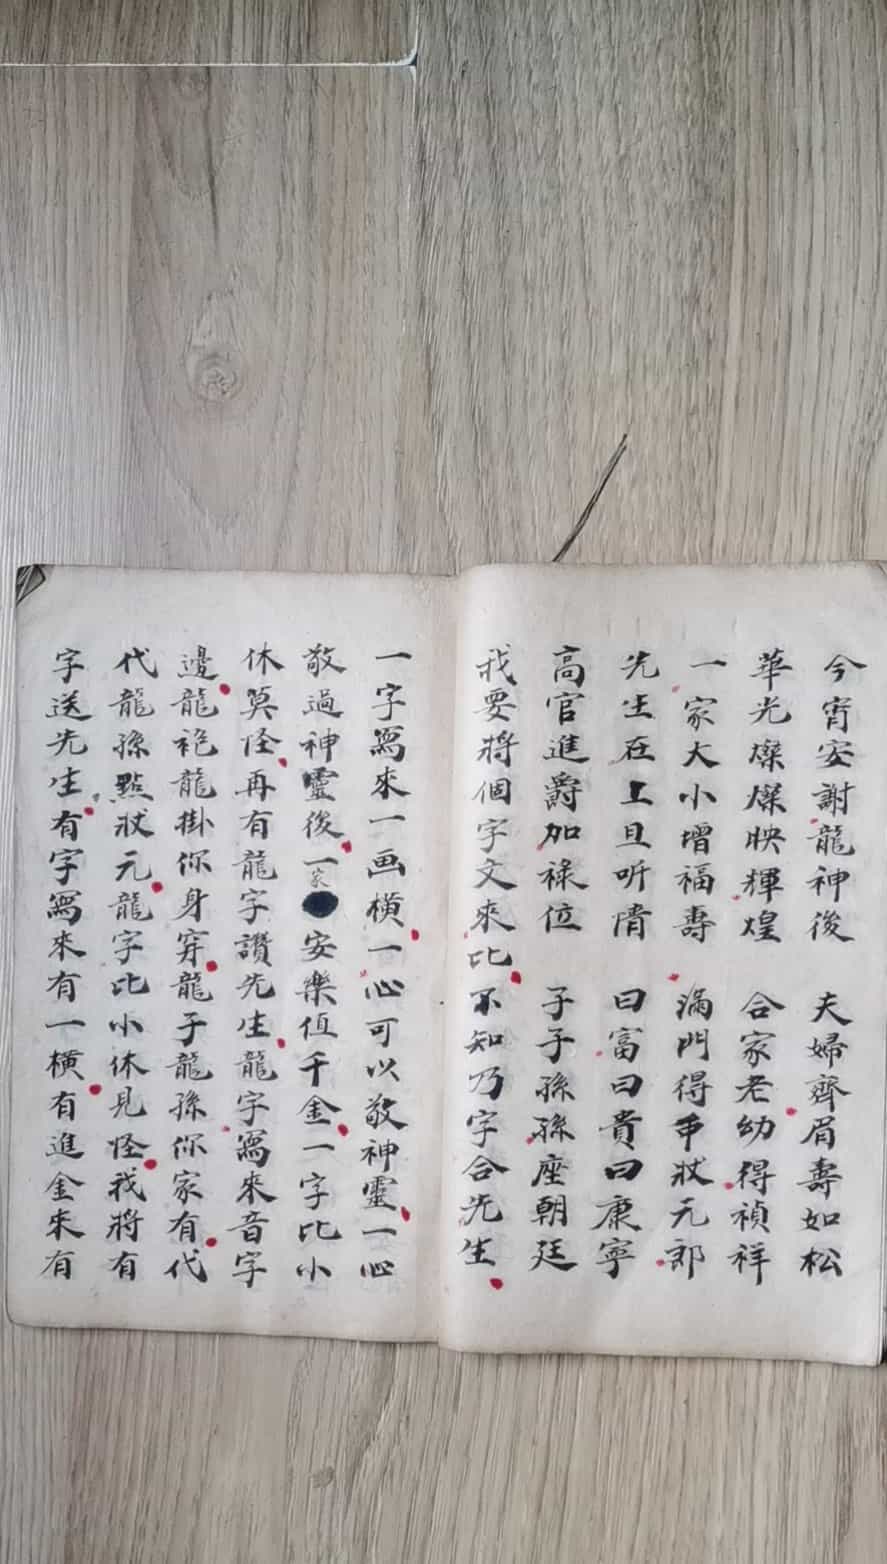 今宵安謝龍神後 夫婦齊眉壽如松
華光燦燦映輝煌 合家老幼得禎祥
一家大小增福壽 滿門得中狀元郎
先生在上且听情 曰富曰貴曰康寧
高官進爵加祿位 子子孫孫座朝廷
我要將個字文來比不知乃字合先生
一字寫來一画橫一心可以敬神靈一心
敬過神靈後一家安樂值千金一字比小
休莫怪再有龍字讚先生龍字寫來音字
邊龍袍龍掛你身穿龍子龍孫你家有代
代龍孫點狀元龍字比小休見怪我將有
字送先生有字寫來有一橫有進金來有